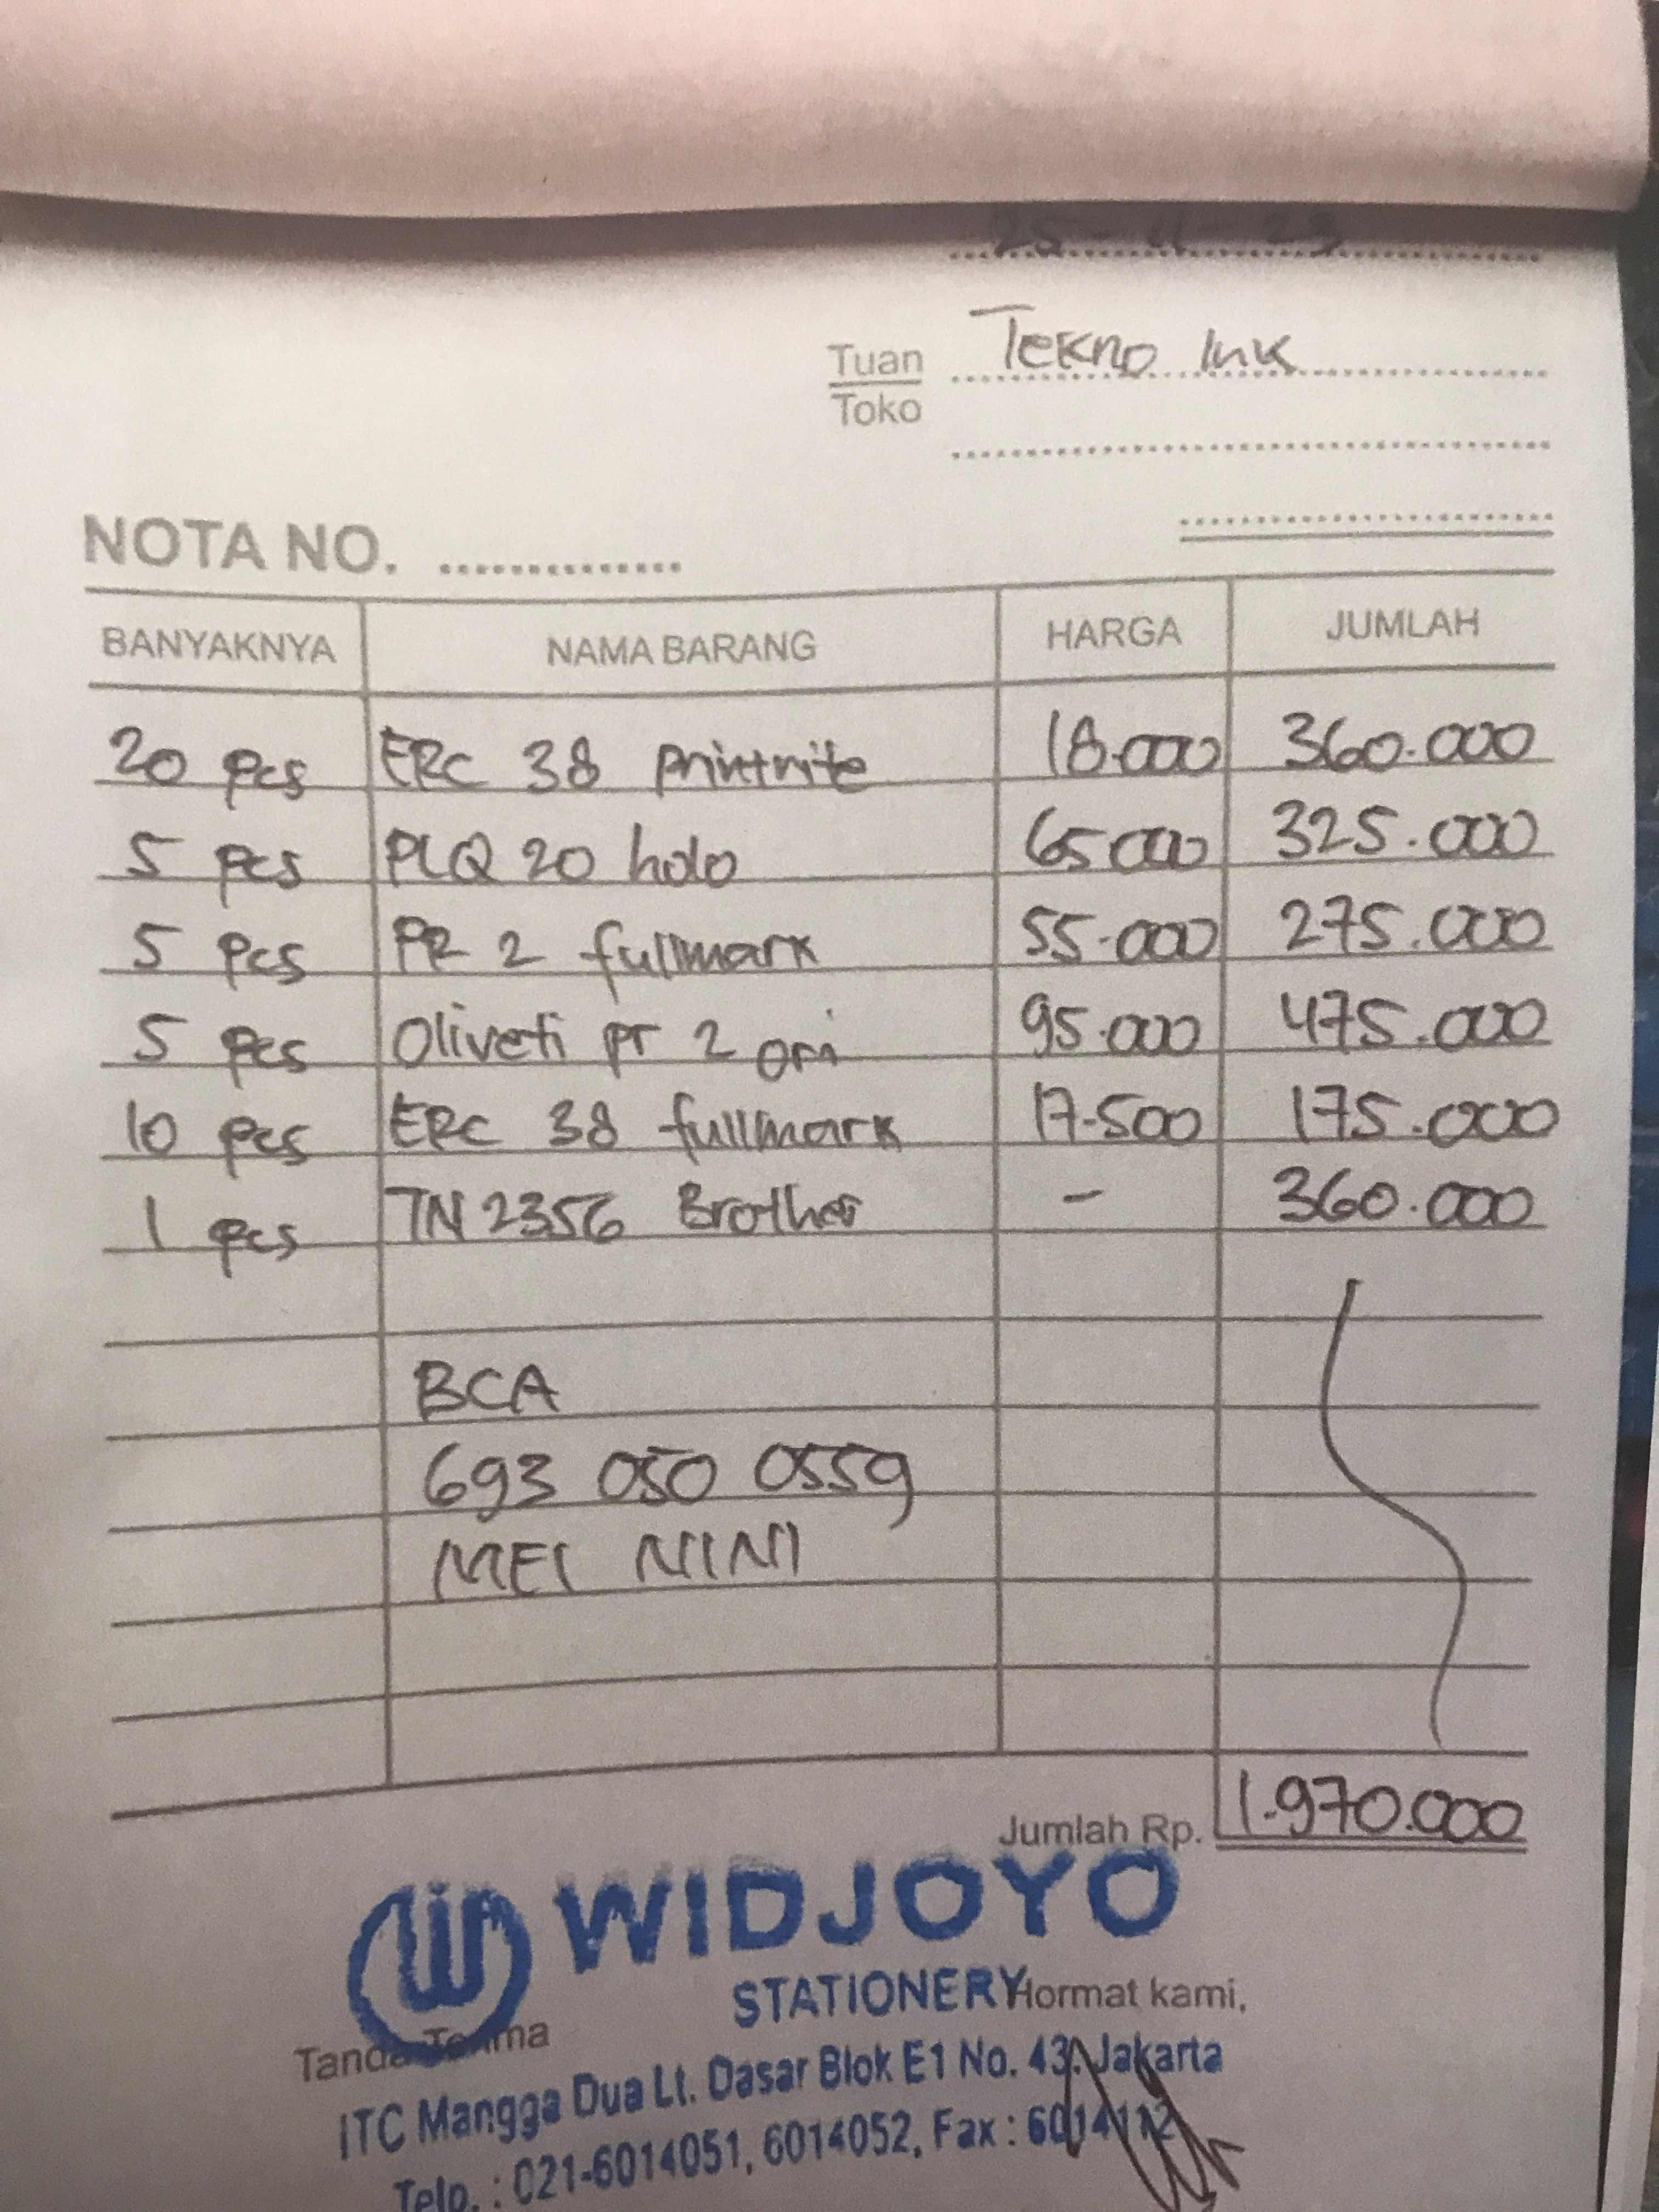 25 - 11 - 23
Tuan Tekno Ink
Toko
NOTA NO.
BANYAKNYA NAMA BARANG HARGA JUMLAH
20 pcs ERC 38 printrite 18.000 360.000
5 pcs PLQ 20 holo 65000 325.000
5 pcs PR 2 fullmark 55.000 275.000
5 pcs Oliveti pr 2 ori 95.000 475.000
10 pcs ERC 38 fullmark 17.500 175.000
1 pcs TN 2356 Brother - 360.000
BCA
693 050 0559
MEI NINI
Jumlah Rp. 1.970.000
WIDJOYO
STATIONERY
Hormat kami,
Tanda Terima
ITC Mangga Dua Lt. Dasar Blok E1 No. 43. Jakarta
Telp. : 021-6014051, 6014052, Fax : 6014112